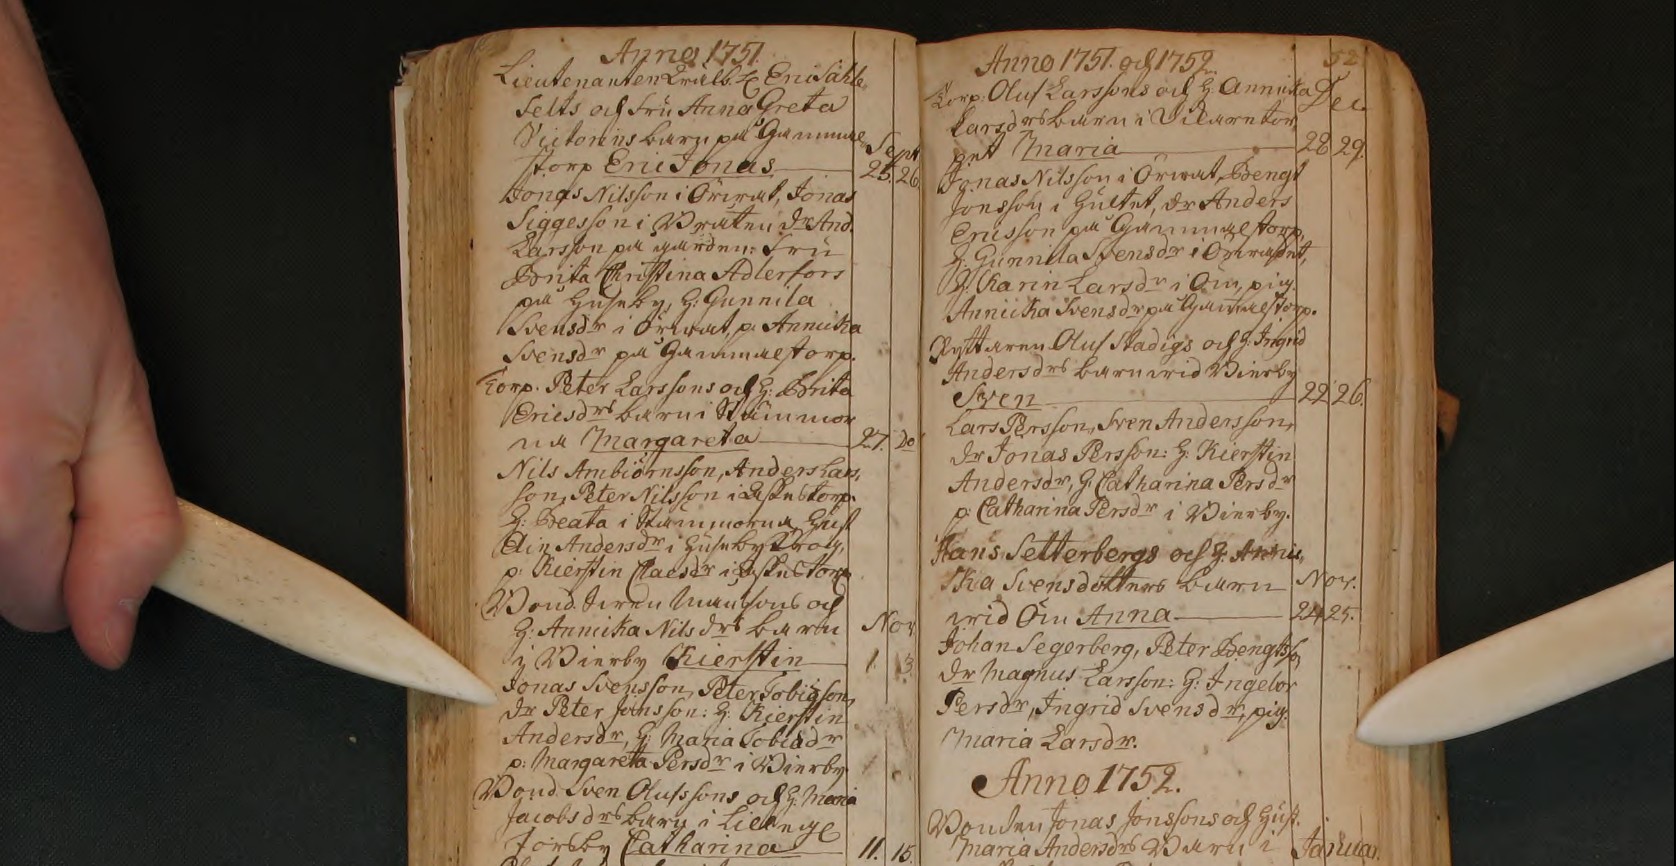 Anno 1751.
Lieutenanten Eric Sahle
felts och Fru Anna Greta
Victorins barn på Gammal
storp Eric Jonas
Sept
25. 26.
Jonas Nilsson i Örwat, Jonas
Siggesson i Wråten dr And.
Larsson på gården: Fru
Brita Christina Adlerfors
på Huseby, H: Gunnila
Svensdr i Örwat, p. Annicka
Svensdr på Gammalstorp.
Korp. Peter Larssons och H: Brita
Ericsdrs barn i Stammor
na Margareta 27. do
Nils Ambiörnsson, Anders Lars,
son, Peter Nilsson i
H: Beata i Stammorna, Hust
Elin Andersdr i Huseby
p: Kierstin Claesdr i
Bond. och
H: Annicka Nilsdrs barn Nov.
i Wierby Kierstin 1. 3.
Jonas Svensson, Peter Tobiæson,
dr Peter Jonsson: H: Kierstin
Andersdr, H: Maria Tobiædr
p: Margareta Persdr i Wierby
Bond Sven Olufssons och H: Maria
Jacobsdrs barn i
Torsby Catharina 11. 15.
Anno 1751. och 1752. 52
Korp: Oluf Larssons och H: Annicka Dec.
Larsdrs barn i
pet Maria 28 29.
Jonas Nilsson i Örwat, Bengt
Jonsson i Hultet, dr Anders
Ericsson på Gammalstorp,
H: Gunnila Svensdr i Örwadet,
H: Karin Larsdr i Öin, pig.
Annicka Svensdr på Gammalstorp.
Ryttaren Oluf Stadigs och H: Ingrid
Andersdrs barn wid Wierby
Sven 22 26.
Lars Persson, Sven Andersson,
dr Jonas Persson: H: Kierstin
Andersdr, H: Catharina Persdr
p: Catharina Persdr i Wierby.
Hans Setterbergs och H: Anni
cka Svensdotters barn Nov.
wid Öin Anna 24 25.
Johan Segerberg, Peter Bengtss,
dr Magnus Larsson: H: Ingebor
Persdr, Ingrid Svensdr, pig.
Maria Larsdr.
Anno 1752.
Bonden Jonas Jonssons och Hust.
Maria Andersdrs Barn i Januar.